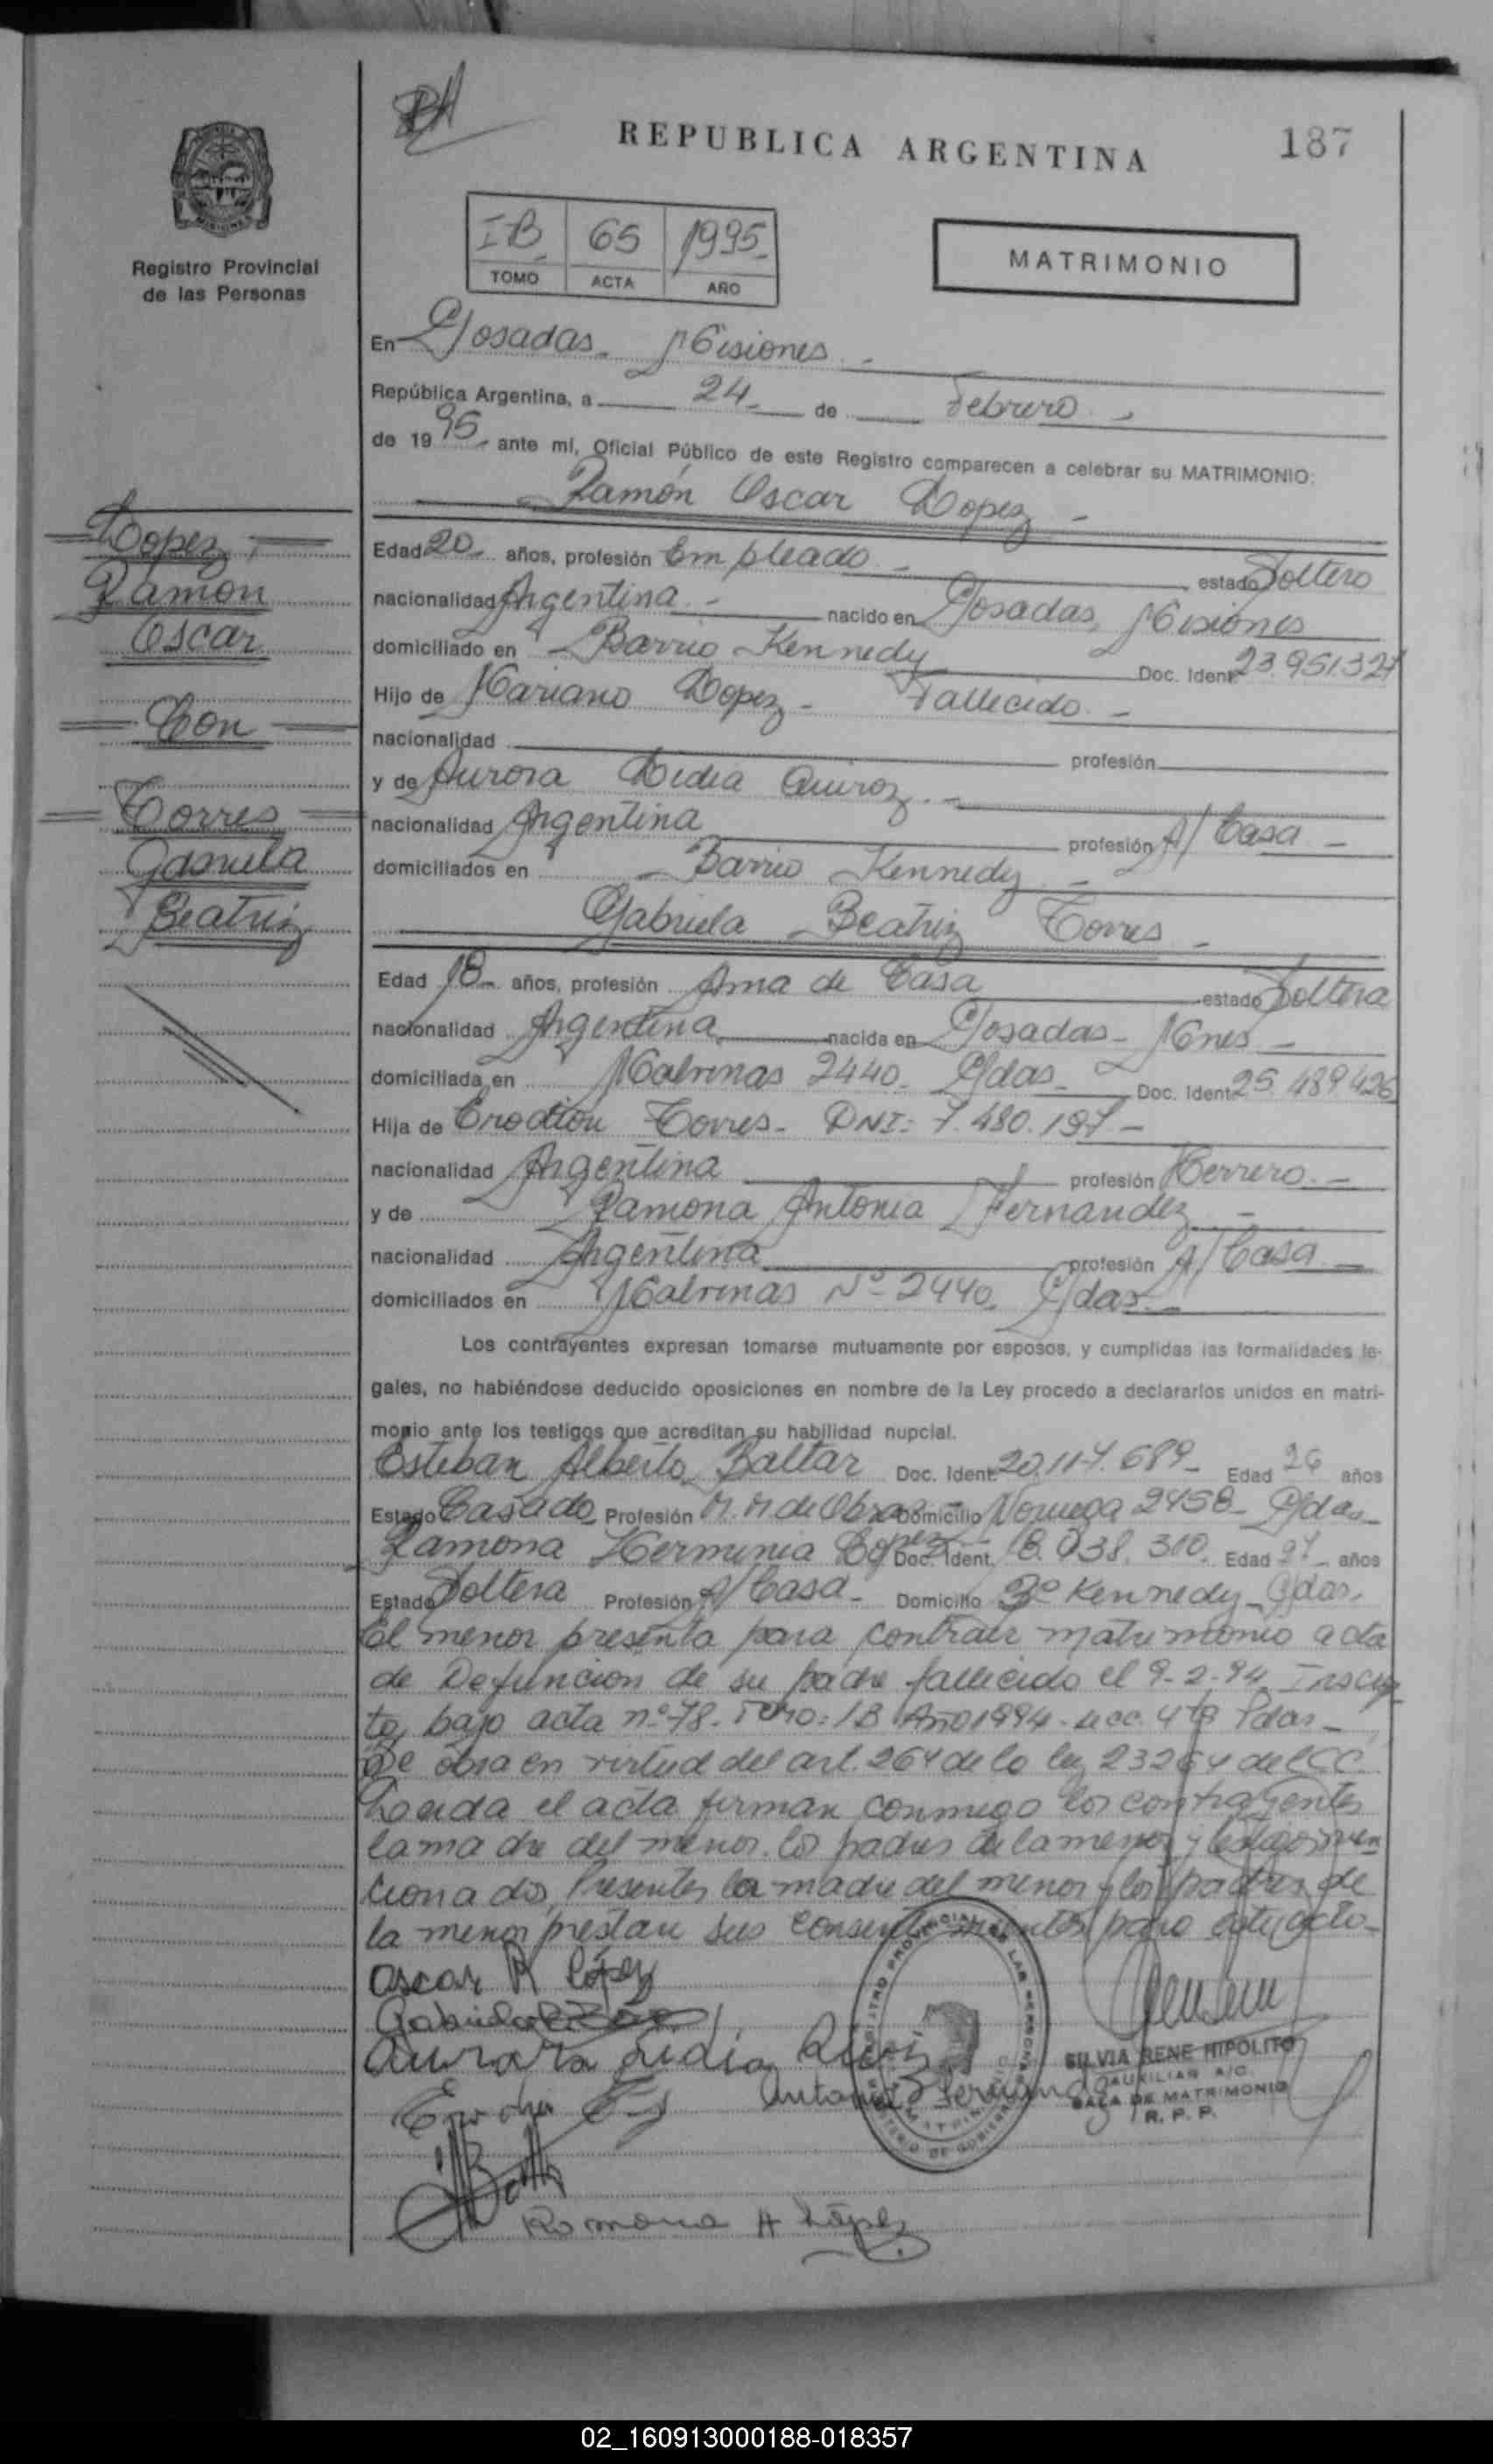 REPUBLICA ARGENTINA
187
Registro Provincial
de las Personas
IB 65 1995
TOMO ACTA AÑO
MATRIMONIO
En Posadas Misiones
República Argentina, a 24 de Febrero
de 1995 ante mi, Oficial Público de este Registro comparecen a celebrar su MATRIMONIO:
Ramón Oscar Lopez
Lopez
Ramón
Oscar
Con
Torres
Gabriela
Beatriz
Edad 20 años, profesión Empleado estado Soltero
nacionalidad Argentina nacido en Posadas, Misiones
domiciliado en Barrio Kennedy Doc. Ident. 23.951.321
Hijo de Mariano Lopez - Fallecido -
nacionalidad profesión
y de Aurora Lidia Quiroz
nacionalidad Argentina profesión A/ Casa
domiciliados en Barrio Kennedy
Gabriela Beatriz Torres
Edad 18 años, profesión Ama de Casa estado Soltera
nacionalidad Argentina nacida en Posadas - Mnes
domiciliada en Malvinas 2440 Pdas Doc. Ident. 25 489 426
Hija de Torres - DNI: 7.480.197
nacionalidad Argentina profesión Herrero
y de Ramona Antonia Fernandez
nacionalidad Argentina profesión A/ Casa
domiciliados en Malvinas Nº 2440 Pdas
Los contrayentes expresan tomarse mutuamente por esposos, y cumplidas las formalidades le-
gales, no habiéndose deducido oposiciones en nombre de la Ley procedo a declararlos unidos en matri-
monio ante los testigos que acreditan su habilidad nupcial.
Esteban Alberto Baltar Doc. Ident. 20.117.689 Edad 26 años
Estado Casado Profesión M.M de Obras Domicilio Noruega 2458 - Pdas
Ramona Herminia Lopez Doc. Ident. 18.038.310 Edad 27 años
Estado Soltera Profesión A/ Casa Domicilio Bº Kennedy - Pdas.
El menor presenta para contraer matrimonio acta
de Defuncion de su padre fallecido el 9-2-94 Inscrip
ta bajo acta nº 78 - Tomo: 1B Año 1994 - secc. 4ta Pdas -
Se obra en virtud del art. 264 de la ley 23264 del CC.
Leida el acta firman conmigo los contrayentes
la madre del menor, los padres de la menor y testigos men
cionados, Presentes la madre del menor y los padres de
la menor prestan sus consentimientos para este acto -
Oscar R López
Gabriela
Aurora Lidia
Antonia Fernandez
SILVIA RENE HIPOLITO
AUXILIAR A/C.
SALA DE MATRIMONIO
R. P. P.
Ramona H López
02_160913000188-018357